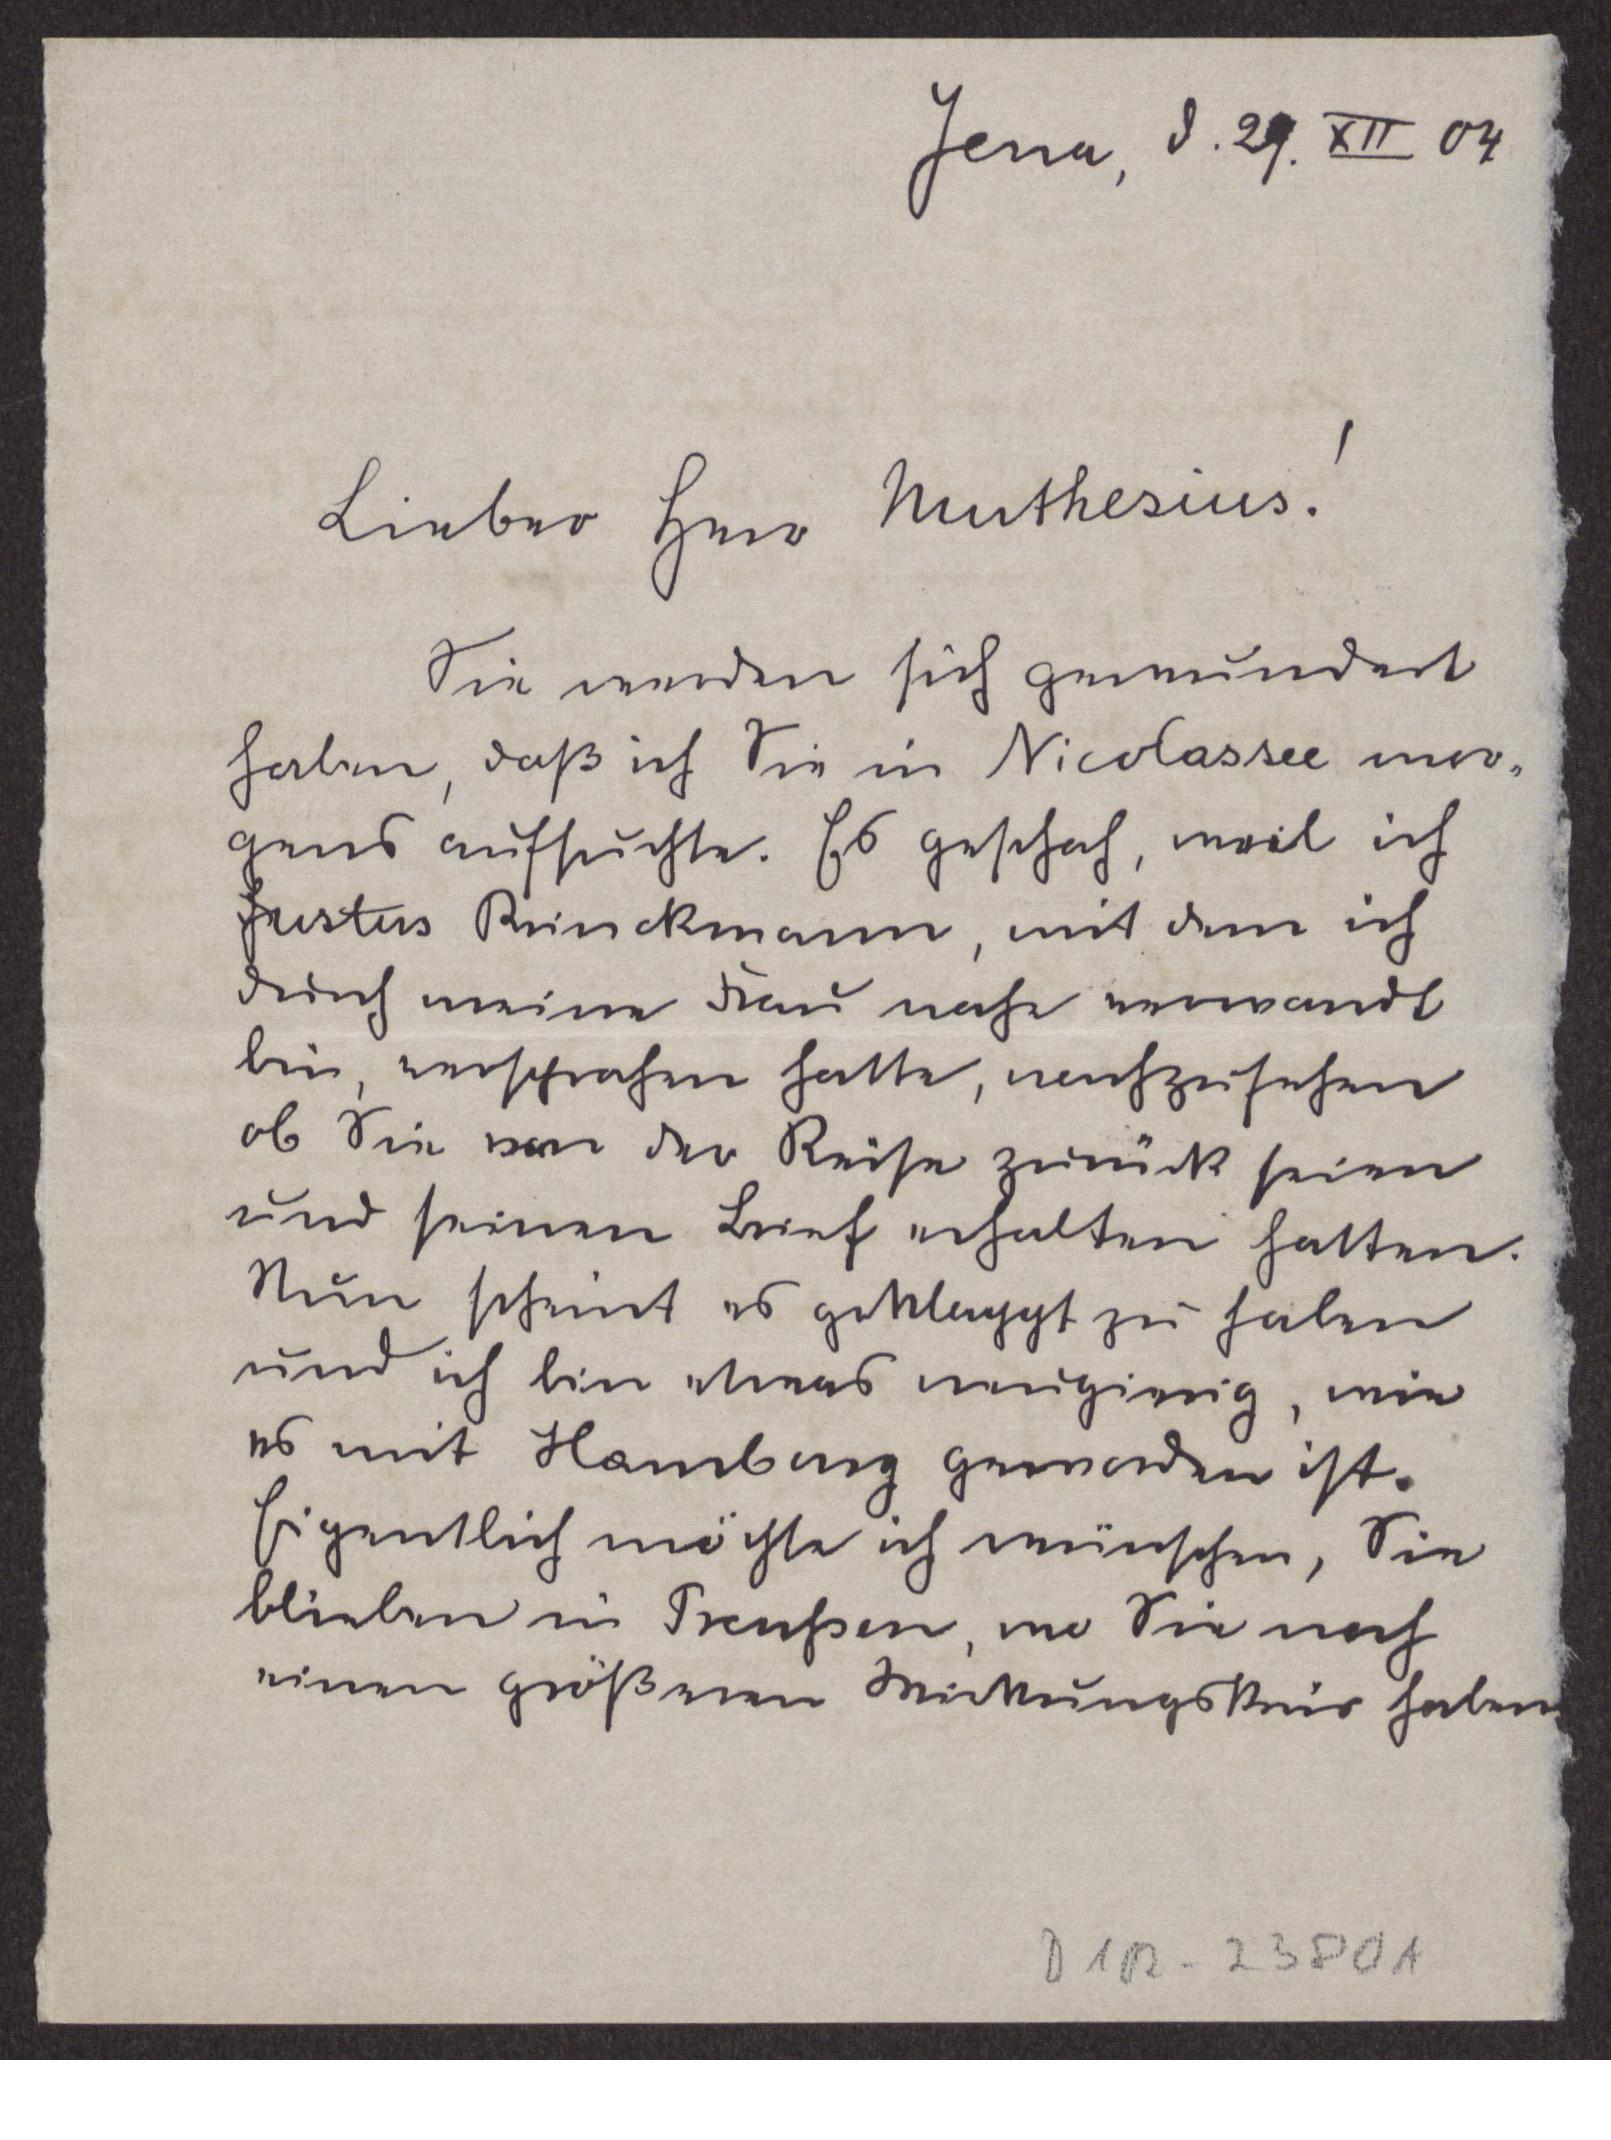 Jena, d. 29. XII 04
Lieber Herr Muthesius!
Sie werden sich gewundert
haben, daß ich Sie in Nicolassee mor-
gens aufsuchte. Es geschah, weil ich
Justus Brinckmann, mit dem ich
durch meine Frau nahe verwandt
bin, versprochen hatte, nachzusehen
ob Sie von der Reise zurück seien
und seinen Brief erhalten hatten.
Nun scheint es geklappt zu haben
und ich bin etwas neugierig, wie
es mit Hamburg geworden ist.
Eigentlich möchte ich wünschen, Sie
blieben in Preußen, wo Sie noch
einen größeren Wirkungskreis haben
D 102 - 2380 A